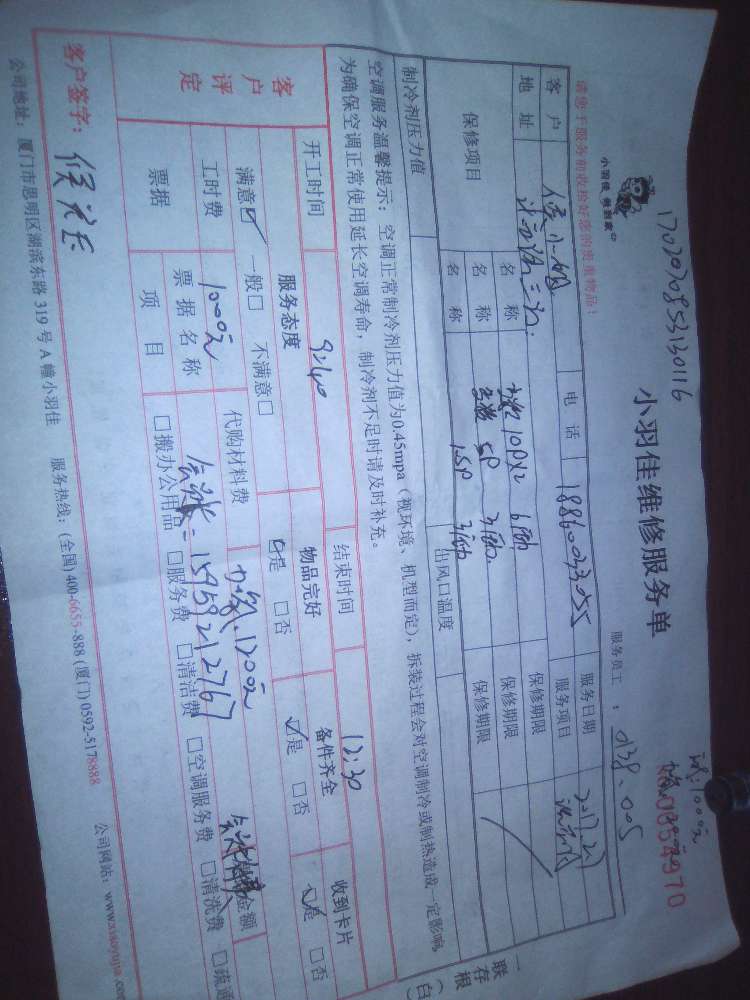 1702070853130116
小羽佳 倾到家
小羽佳维修服务单
请您于服务前收拾好您的贵重物品!
服务员工 : 038、005
客户 侯小姐 电话 18860033055 服务日期 2017.2.7
地址 服务项目
保修项目 名称 加氨10P×2 6 保修期限
名称 5P 保修期限
名称 1.5P 保修期限
制冷剂压力值 出风口温度
空调服务温馨提示: 空调正常制冷剂压力值为0.45mpa (视环境、机型而定), 拆装过程会对空调制冷或制热造成一定影响,
为确保空调正常使用延长空调寿命, 制冷剂不足时请及时补充。
一联存根(白
开工时间 9:40 结束时间 12:30
客户评定 服务态度 物品完好 备件齐全 收到卡片
满意☑ 一般□ 不满意□ ☑是 □否 ☑是 □否 ☑是 □否
工时费 1000元 代购材料费 1200元 金额
票据 票据名称 15959212767
项目 □搬办公用品 □服务费 □清洁费 □空调服务费 □清洗费 □疏通
客户签字:
公司地址: 厦门市思明区湖滨东路 319 号 A 幢小羽佳 服务热线: (全国) 400-6655-888 (厦门) 0592-5178888 公司网站: www.xiaoyujia.com